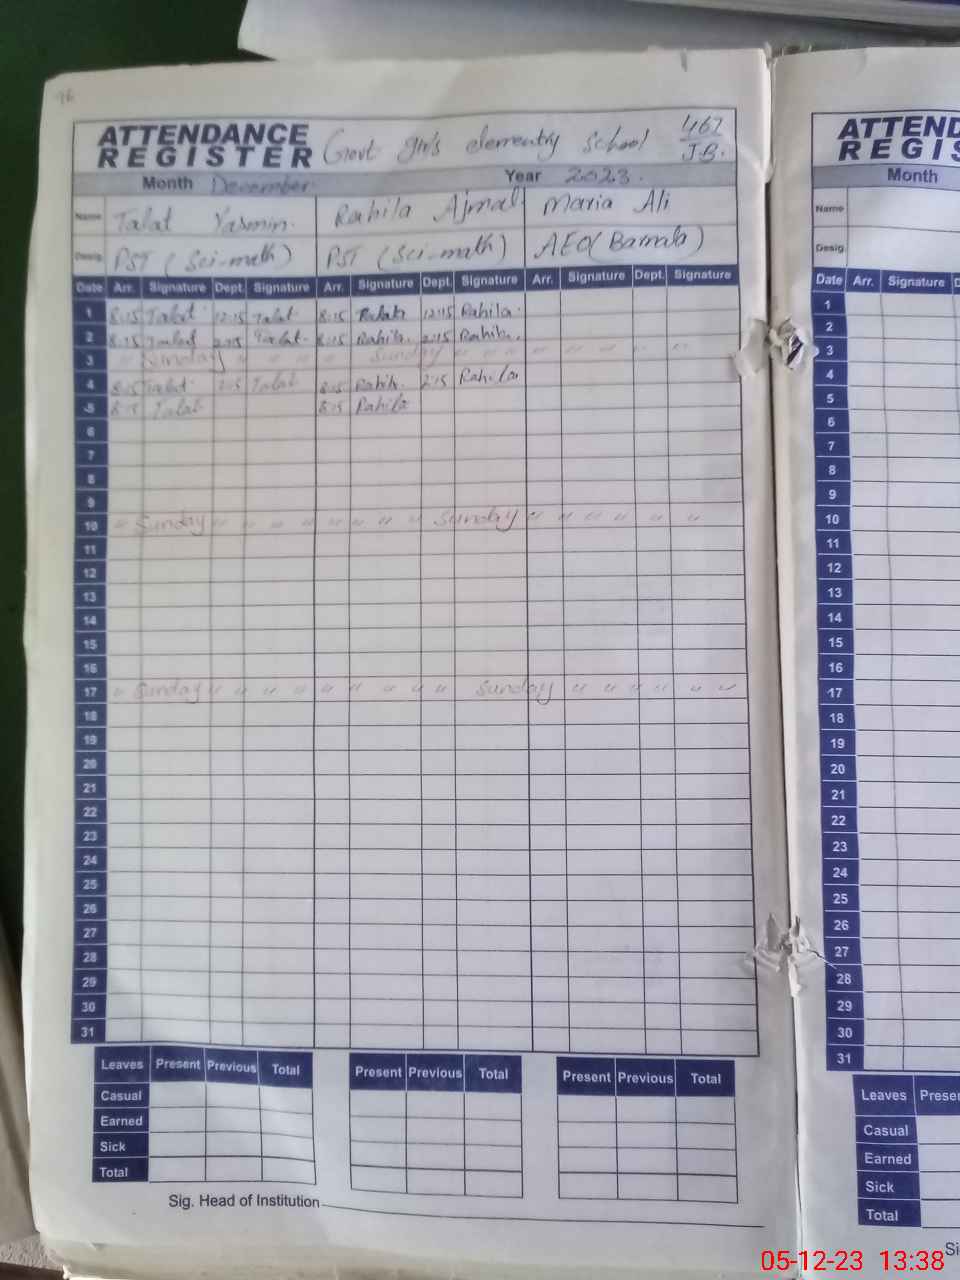 96
ATTENDANCE REGISTER Govt girls elementry School 467 J.B.
Month December Year 2023.
Name Talat Yasmin. Rahila Ajmal Maria Ali
Desig. PST (Sci-math) PST (Sci-math) AEO (Barnala)
Date Arr. Signature Dept. Signature Arr. Signature Dept. Signature Arr. Signature Dept. Signature
1 8:15 Talat 12:15 Talat 8:15 Rahila 12:15 Rahila
2 8:15 Talat 2:15 Talat 8:15 Rahila 2:15 Rahila
3 " Sunday " " " " Sunday " " " " " " "
4 8:15 Talat 2:15 Talat 8:15 Rahila 2:15 Rahila
5 8:15 Talat 8:15 Rahila
6
7
8
9
10 " Sunday " " " " " " " " Sunday " " " " " "
11
12
13
14
15
16
17 " Sunday " " " " " " " " Sunday " " " " " "
18
19
20
21
22
23
24
25
26
27
28
29
30
31
Leaves Present Previous Total Present Previous Total Present Previous Total
Casual
Earned
Sick
Total
Sig. Head of Institution
ATTEND
REGIS
Month
Name
Desig.
Date Arr. Signature D
1
2
3
4
5
6
7
8
9
10
11
12
13
14
15
16
17
18
19
20
21
22
23
24
25
26
27
28
29
30
31
Leaves Presen
Casual
Earned
Sick
Total
Si
05-12-23 13:38